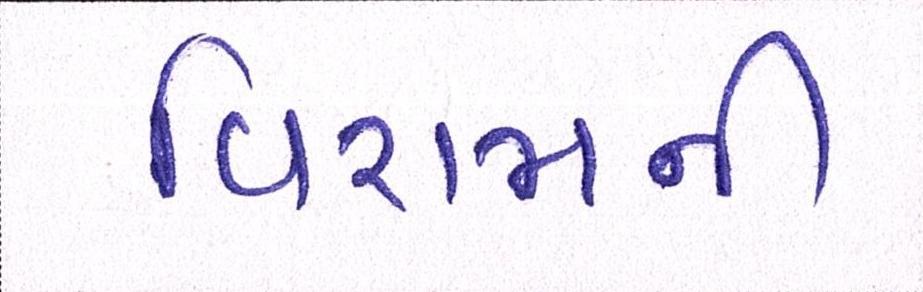 વિરામની